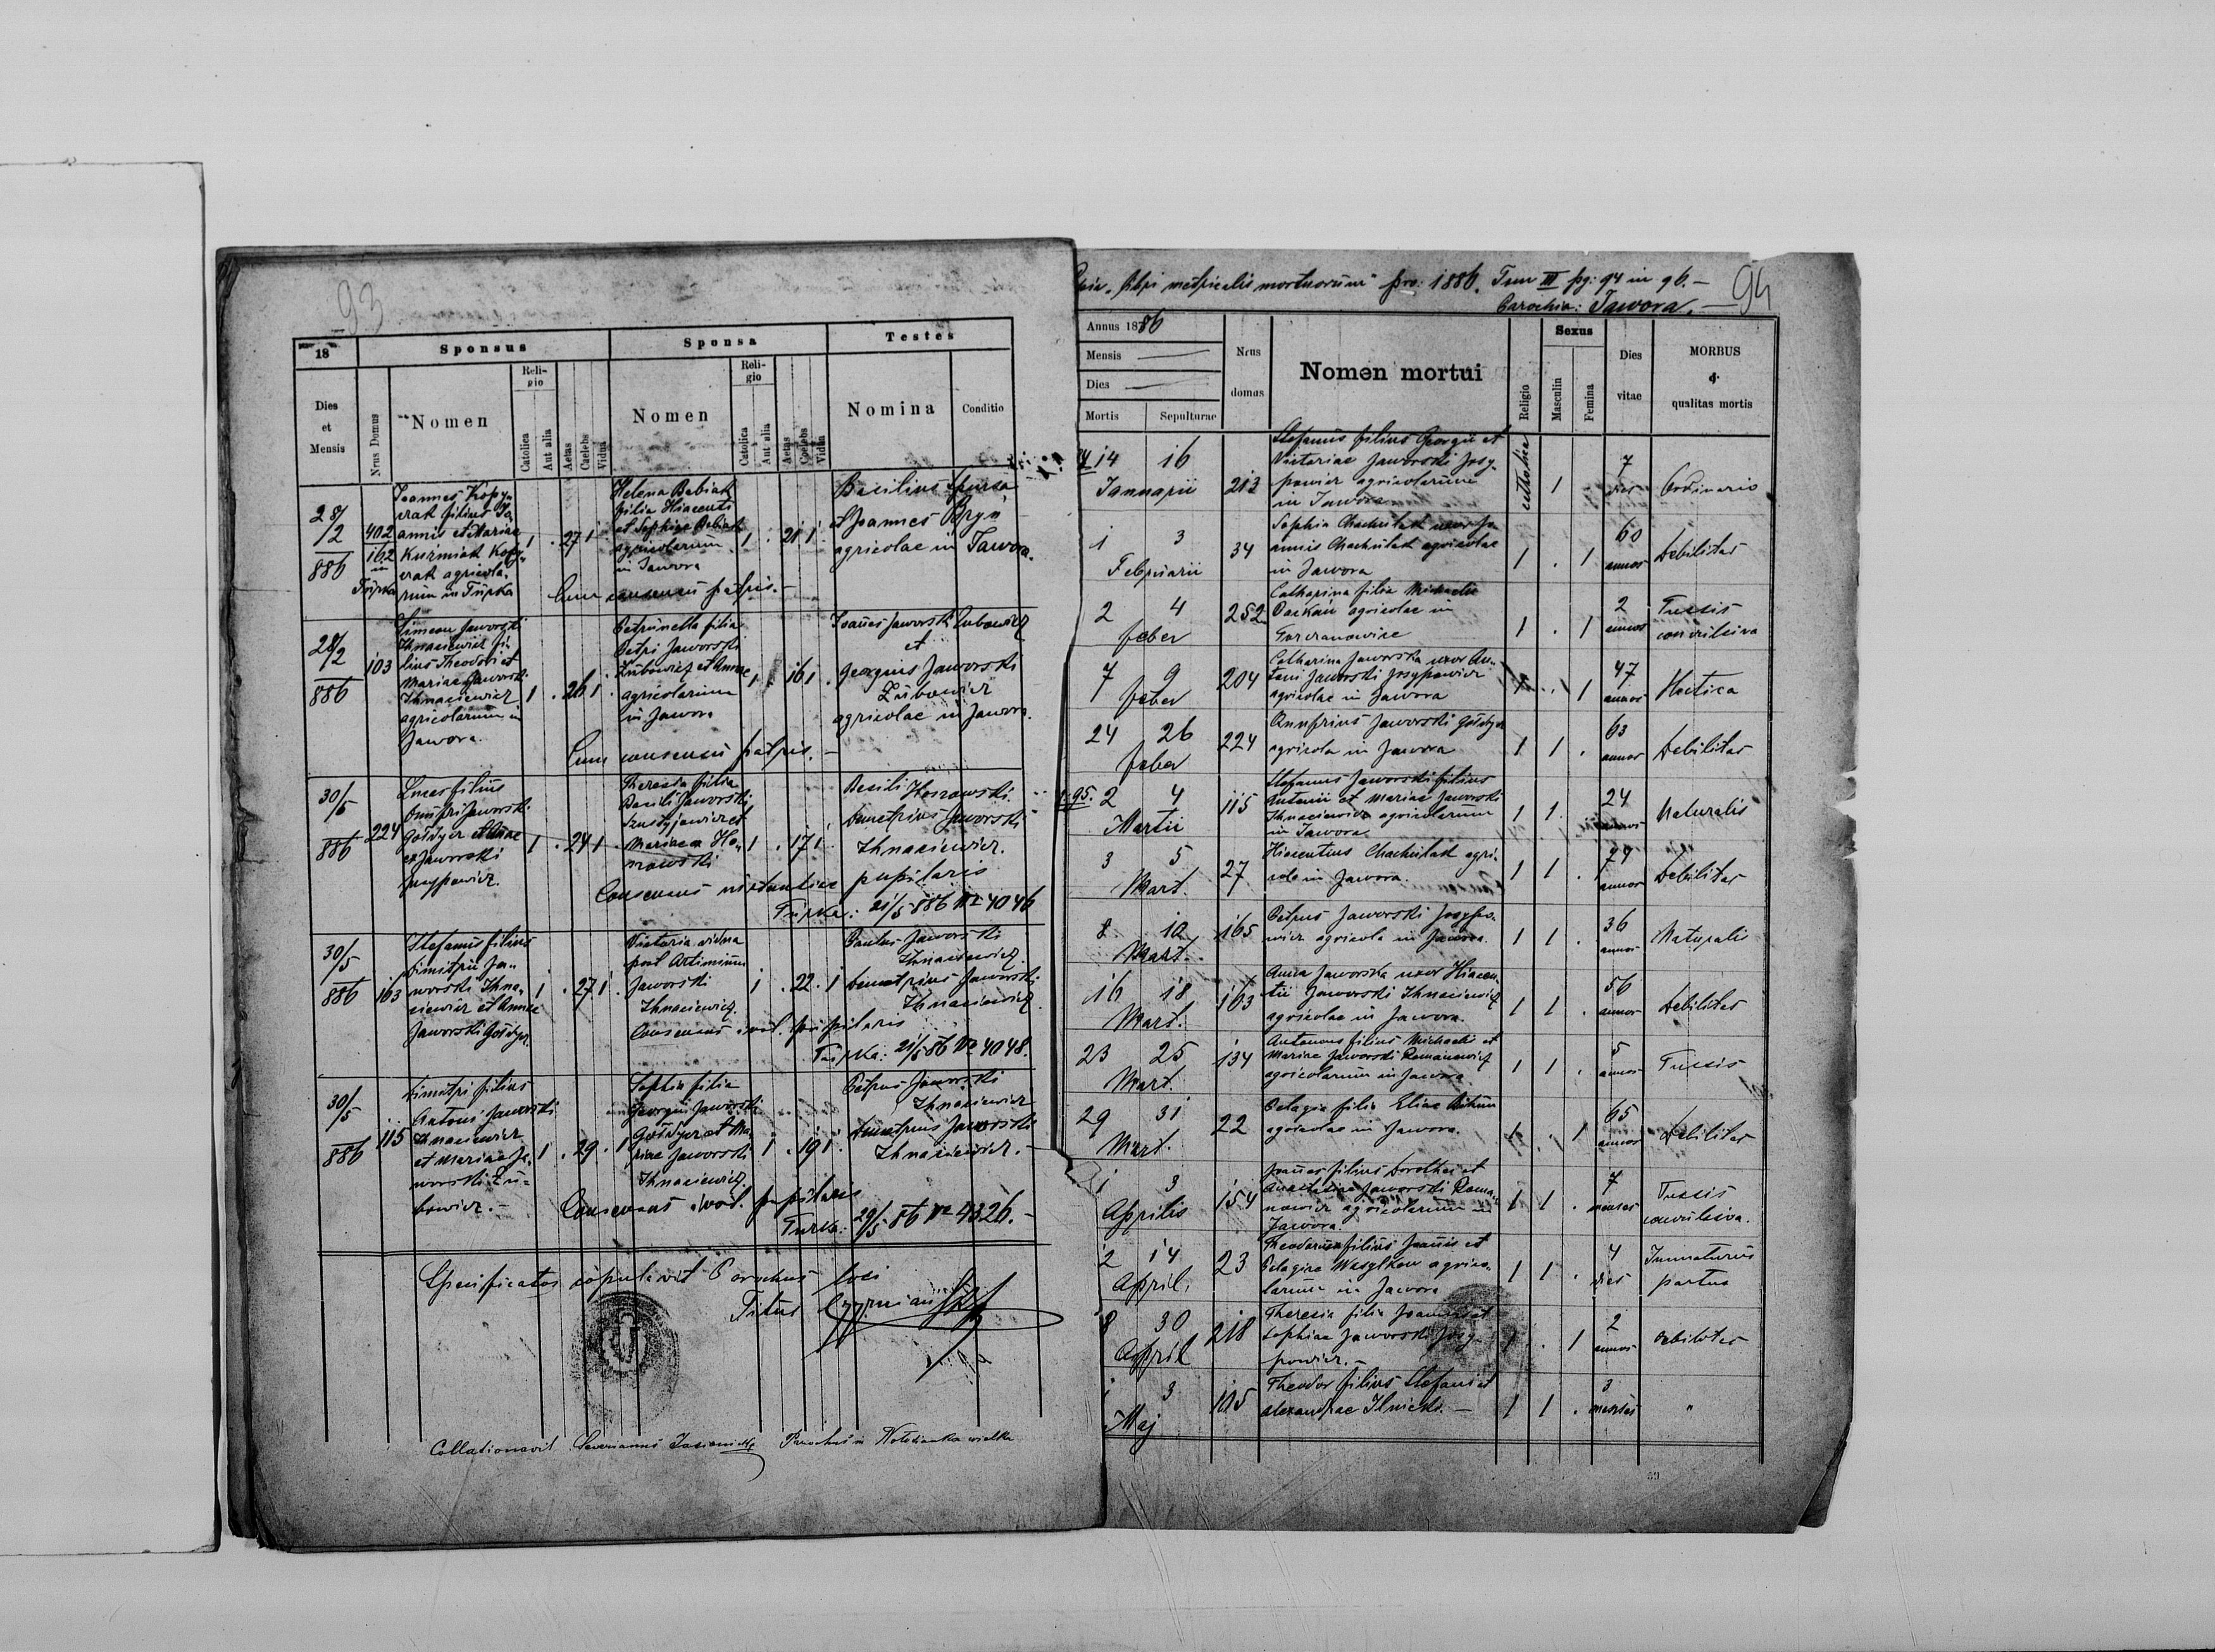 93
18
Sponsus
Sponsa
Testes
Dies
et
Mensis
Nrus Domus
Nomen
Religio
Catolica
Aut alia
Aetas
Caelebs
Vidua
Nomen
Religio
Catolica
Aut alia
Aetas
Caelebs
Vidua
Nomina
Conditio
28/2
886
402
162
in
Turka
Joannes
filius Jo
annis et Mariae
Kuźmiak
agricola
rum in Turka
1 . 27 1
Helena Babiak
filia Hiacenti
et Sophiae Babiak
agricolarum
in Jawora
1 . 21 1
Basilius
et Joannes
agricolae in Jawora
Cum consensu patris.-
28/2
886
103
Simeon Jaworski
Ihnaciewicz fi
lius Theodori et
Mariae Jaworski
Ihnaciewicz
agricolarum in
Jawora.
1 . 26 1
Petrunella filia
Petri Jaworski
Zubowicz et Annae
agricolarum
in Jawora
1 . 16 1
Joanes Jaworski Zubowicz
et
Georgius Jaworski
Zubowicz
agricolae in Jawora.
Cum consensu patris. -
30/5
886
224
Lucas filius
Onufri Jaworski
Gołdycz et Annae
ex Jaworski
Josypowicz.
1 . 24 1
filia
Basili Jaworski
et
Mariae
1 . 17 1
Basili
Demetrius Jaworski
Ihnaciewicz.
Consensus instantiae pupilaris
Turka: 21/5 886 No 4046
30/5
886
163
Stefanus filius
Dimitrii Ja-
worski Ihna-
ciewicz et Annae
Jaworski Gołdycz.
1 . 27 1
Victoria vidua
post Artimium
Jaworski
Ihnaciewicz.
1 . 22 . 1
Paulus Jaworski
Ihnaciewicz.
Demetrius Jaworski
Ihnaciewicz.
Consensus iud. pupilaris
Turka: 21/5 86 No 4048.
30/5
886
115
Dimitri filius
Antoni Jaworski
Ihnaciewicz
et Mariae Ja-
worski Zu-
bowicz. -
1 . 29 . 1
Sophia filia
Georgii Jaworski
Gołdycz et Ma-
riae Jaworski
Ihnaciewicz.
1 . 19 1
Petrus Jaworski
Ihnaciewicz
Demetrius Jaworski
Ihnaciewicz. -
Consensus iud. pupilaris
Turka: 29/5 86 No 4326. -
Specificatos copulavit Parochus loci
Titus
Collationavit Severianus Jasienicki Parochus in Wołosianka wielka
Copia "libri metricalis mortuorum" pro: 1886. Tom III pg: 94 in 96. -
Parochia: Jawora. -
94
Annus 1886
Mensis
Dies
Mortis
Sepulturae
Nrus
domus
Nomen mortui
Religio
Sexus
Masculin
Femina
Dies
vitae
MORBUS
&
qualitas mortis
14 16
Januarii
213
Stefanus filius Georgii et
Victoriae Jaworski Josy-
powicz agricolarum
in Jawora
catholica
1
7
dies
Ordinario
1 3
Februarii
34
Sophia Chachulak uxor Jo
annis Chachulak agricolae
in Jawora
1 . 1
60
annos
Debilitas
2 4
feber
252
Catharina filia Michaelis
agricolae in
1 . 1
2
annos
Tussis
convulsiva
7 9
feber
204
Catharina Jaworska uxor An-
toni Jaworski Josypowicz
agricolae in Jawora
1 . 1
47
annos
Hectica
24 26
feber
224
Onufrius Jaworski Gołdycz
agricola in Jawora
1 1 .
63
annos
Debilitas
p. 95.
2 4
Martii
115
Stefanus Jaworski filius
Antonii et Mariae Jaworski
Ihnaciewicz agricolarum
in Jawora
1 1
24
annos
Naturalis
3 5
Mart.
27
Hiacentus Chachulak agri-
cola in Jawora.
1 1 .
74
annos
Debilitas
8 10
Mart.
165
Petrus Jaworski Josypo-
wicz agricola in Jawora.
1 1 .
36
annos
Naturalis
16 18
Mart.
163
Anna Jaworska uxor Hiacen
tii Jaworski Ihnaciewicz
agricolae in Jawora.
1 1 .
56
annos
Debilitas
23 25
Mart.
134
Antonus filius Michaelis et
Mariae Jaworski Romanowicz
agricolarum in Jawora
1 1 .
5
annos
Tussis
29 31
Mart.
22
Pelagia filia Eliae
agricolae in Jawora.
1 . 1
65
annos
Debilitas
1 3
Aprilis
154
Joanes filius Dorothei et
Anastasiae Jaworski Roma-
nowicz agricolarum in
Jawora.
1 1 .
7
menses
Tussis
convulsiva.
2 14
April.
23
Theodorus filius Joanis et
Pelagiae Wasylkow agrico-
larum in Jawora
1 1 .
4
dies
Immaturus
partus
30
April
218
Theresia filia Joannis et
Sophiae Jaworski Josy-
powicz. -
1 . 1
2
annos
debilitas
1 3
Maj
105
Theodor filius Stefani et
Alexandrae Ilnicki. -
1 1 .
3
menses
"